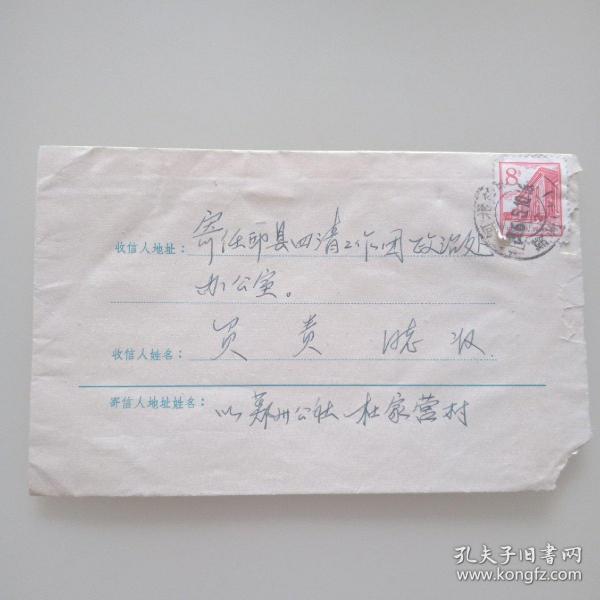 8
收信人地址：寄任邱县四清工作团政治处
办公室。
收信人姓名：贠责 同志收
寄信人地址姓名：从鄚州公社杜家营村
孔夫子旧书网
www.kongfz.com